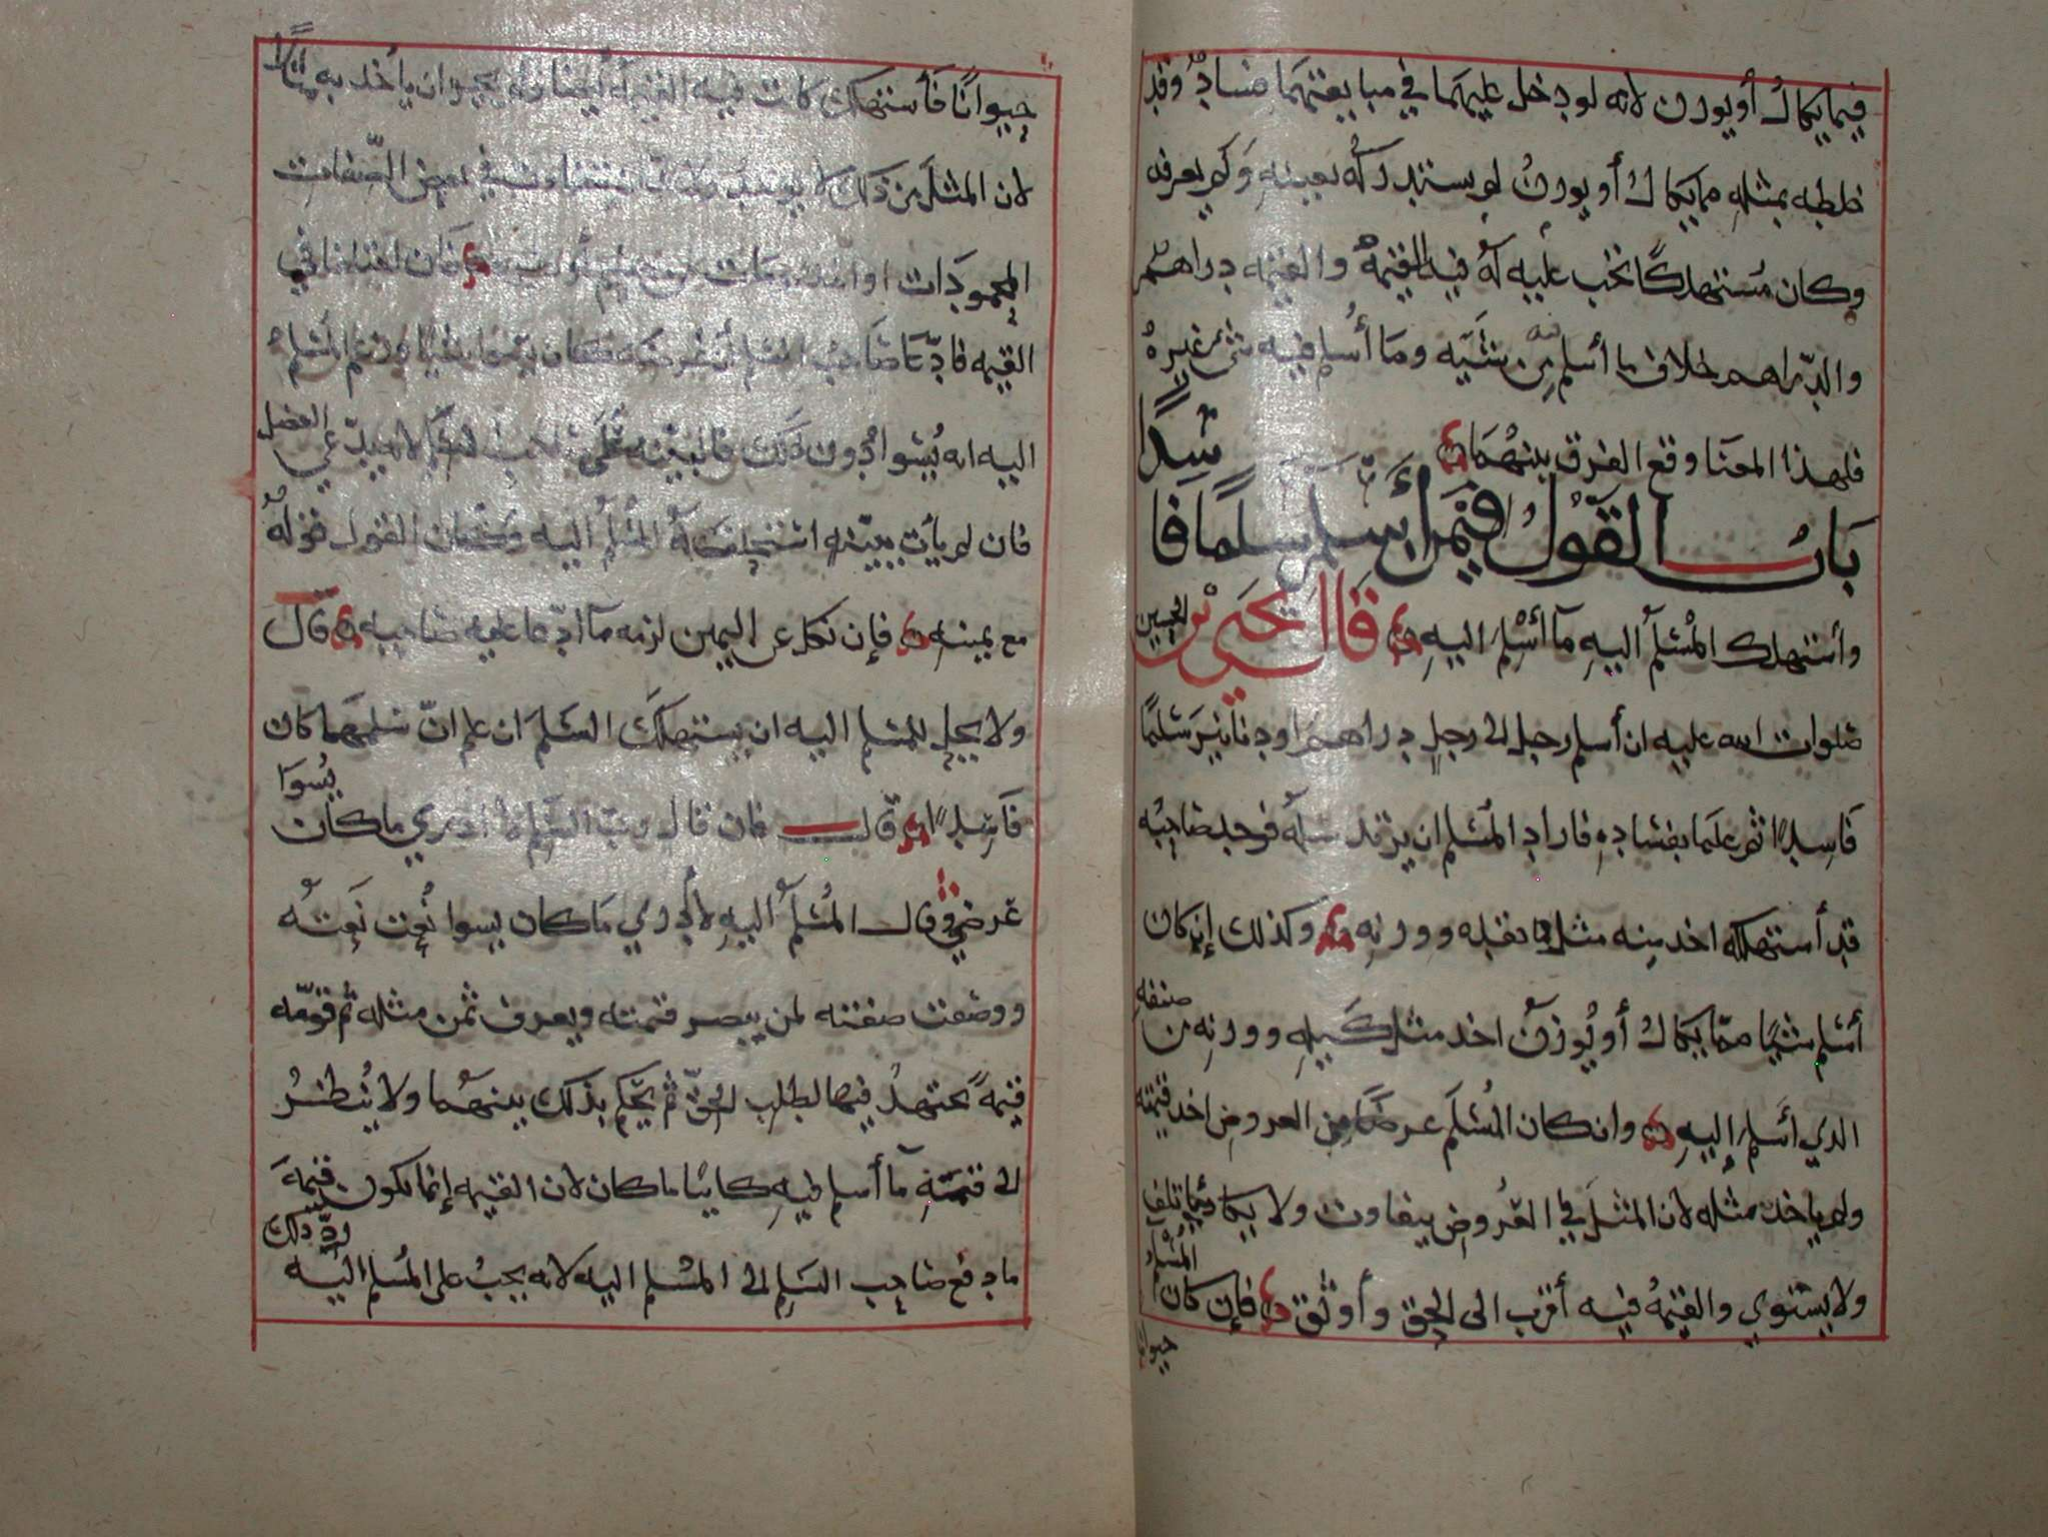 فيما يكال أو يوزن لانه لو دخل عليهما في مبايعتهما فساد وقد
خلطه بمثله مما يكال أو يوزن لم يستدركه بعينه ولم يعرفه
وكان مستهلكًا تجب عليه له فيه القيمة والقيمه دراهم
والدراهم خلاف ما أسلم من شيه وما أسلم فيه شئ غيره
فلهذا المعنا وقع الفرق بينهما
باب القول فيمن أسلم سلمًا فاسدًا
وأستهلك المسلم اليه ما أسلم اليه قال يحيى بن الحسين
صلوات الله عليه ان أسلم رجل الى رجل دراهم او دنانير سلمًا
فاسدًا ثم علما بفساده فاراد المسلم ان يرتد سلمه فوجد صاحبه
قد أستهلكه اخد منه مثل نقده ووزنه وكذلك إن كان
أسلم شيًا مما يكال أو يوزن اخد مثل كيله ووزنه من صنفه
الدي أسلم إليه وان كان المسلم عرضًا من العروض اخد قيمته
ولم ياخد مثله لان المثل في العروض يتفاوت ولا يكاد يأتلف
ولا يستوي والقيمة فيه أقرب الى الحق وأوثق فإن كان المسلم
حيوانًا
حيوانًا فأستهلك كانت فيه القيمه أيضًا ولم يجز ان ياخد به حيوانًا
لان المثل من ذلك لا يوجد في بعض الصفات
المحمودات او فان اختلفا في
القيمه فادعا صاحب المسلم أن عرضه كان يسوا شيًا وزعم المسلم
اليه انه يسوا دون ذلك فالبينه على صاحب السلم لانه يدعي الفضل
فان لم يأت ببينه استحلف له المسلم اليه وكان القول قوله
مع يمينه فإن نكل عن اليمين لزمه ما ادعا عليه صاحبه قال
ولا يحل للمسلم اليه ان يستهلك السلم ان علم انّ سلمهما كان
فاسدًا قال فان قال رب السلم ما ادري ما كان يسوا
عرضي وقال المسلم اليه لا أدري ما كان يسوا نعت نعته
ووصفت صفته لمن يبصر قيمته ويعرف ثمن مثله ثم قومه
قيمةً يجتهد فيها لطلب الحق ثم يحكم بذلك بينهما ولا ينظر
الى قيمة ما أسلم فيه كاينا ما كان لان القيمه إنما تكون قيمة
ما دفع صاحب السلم الى المسلم اليه لانه يجب على المسلم اليه رد ذلك